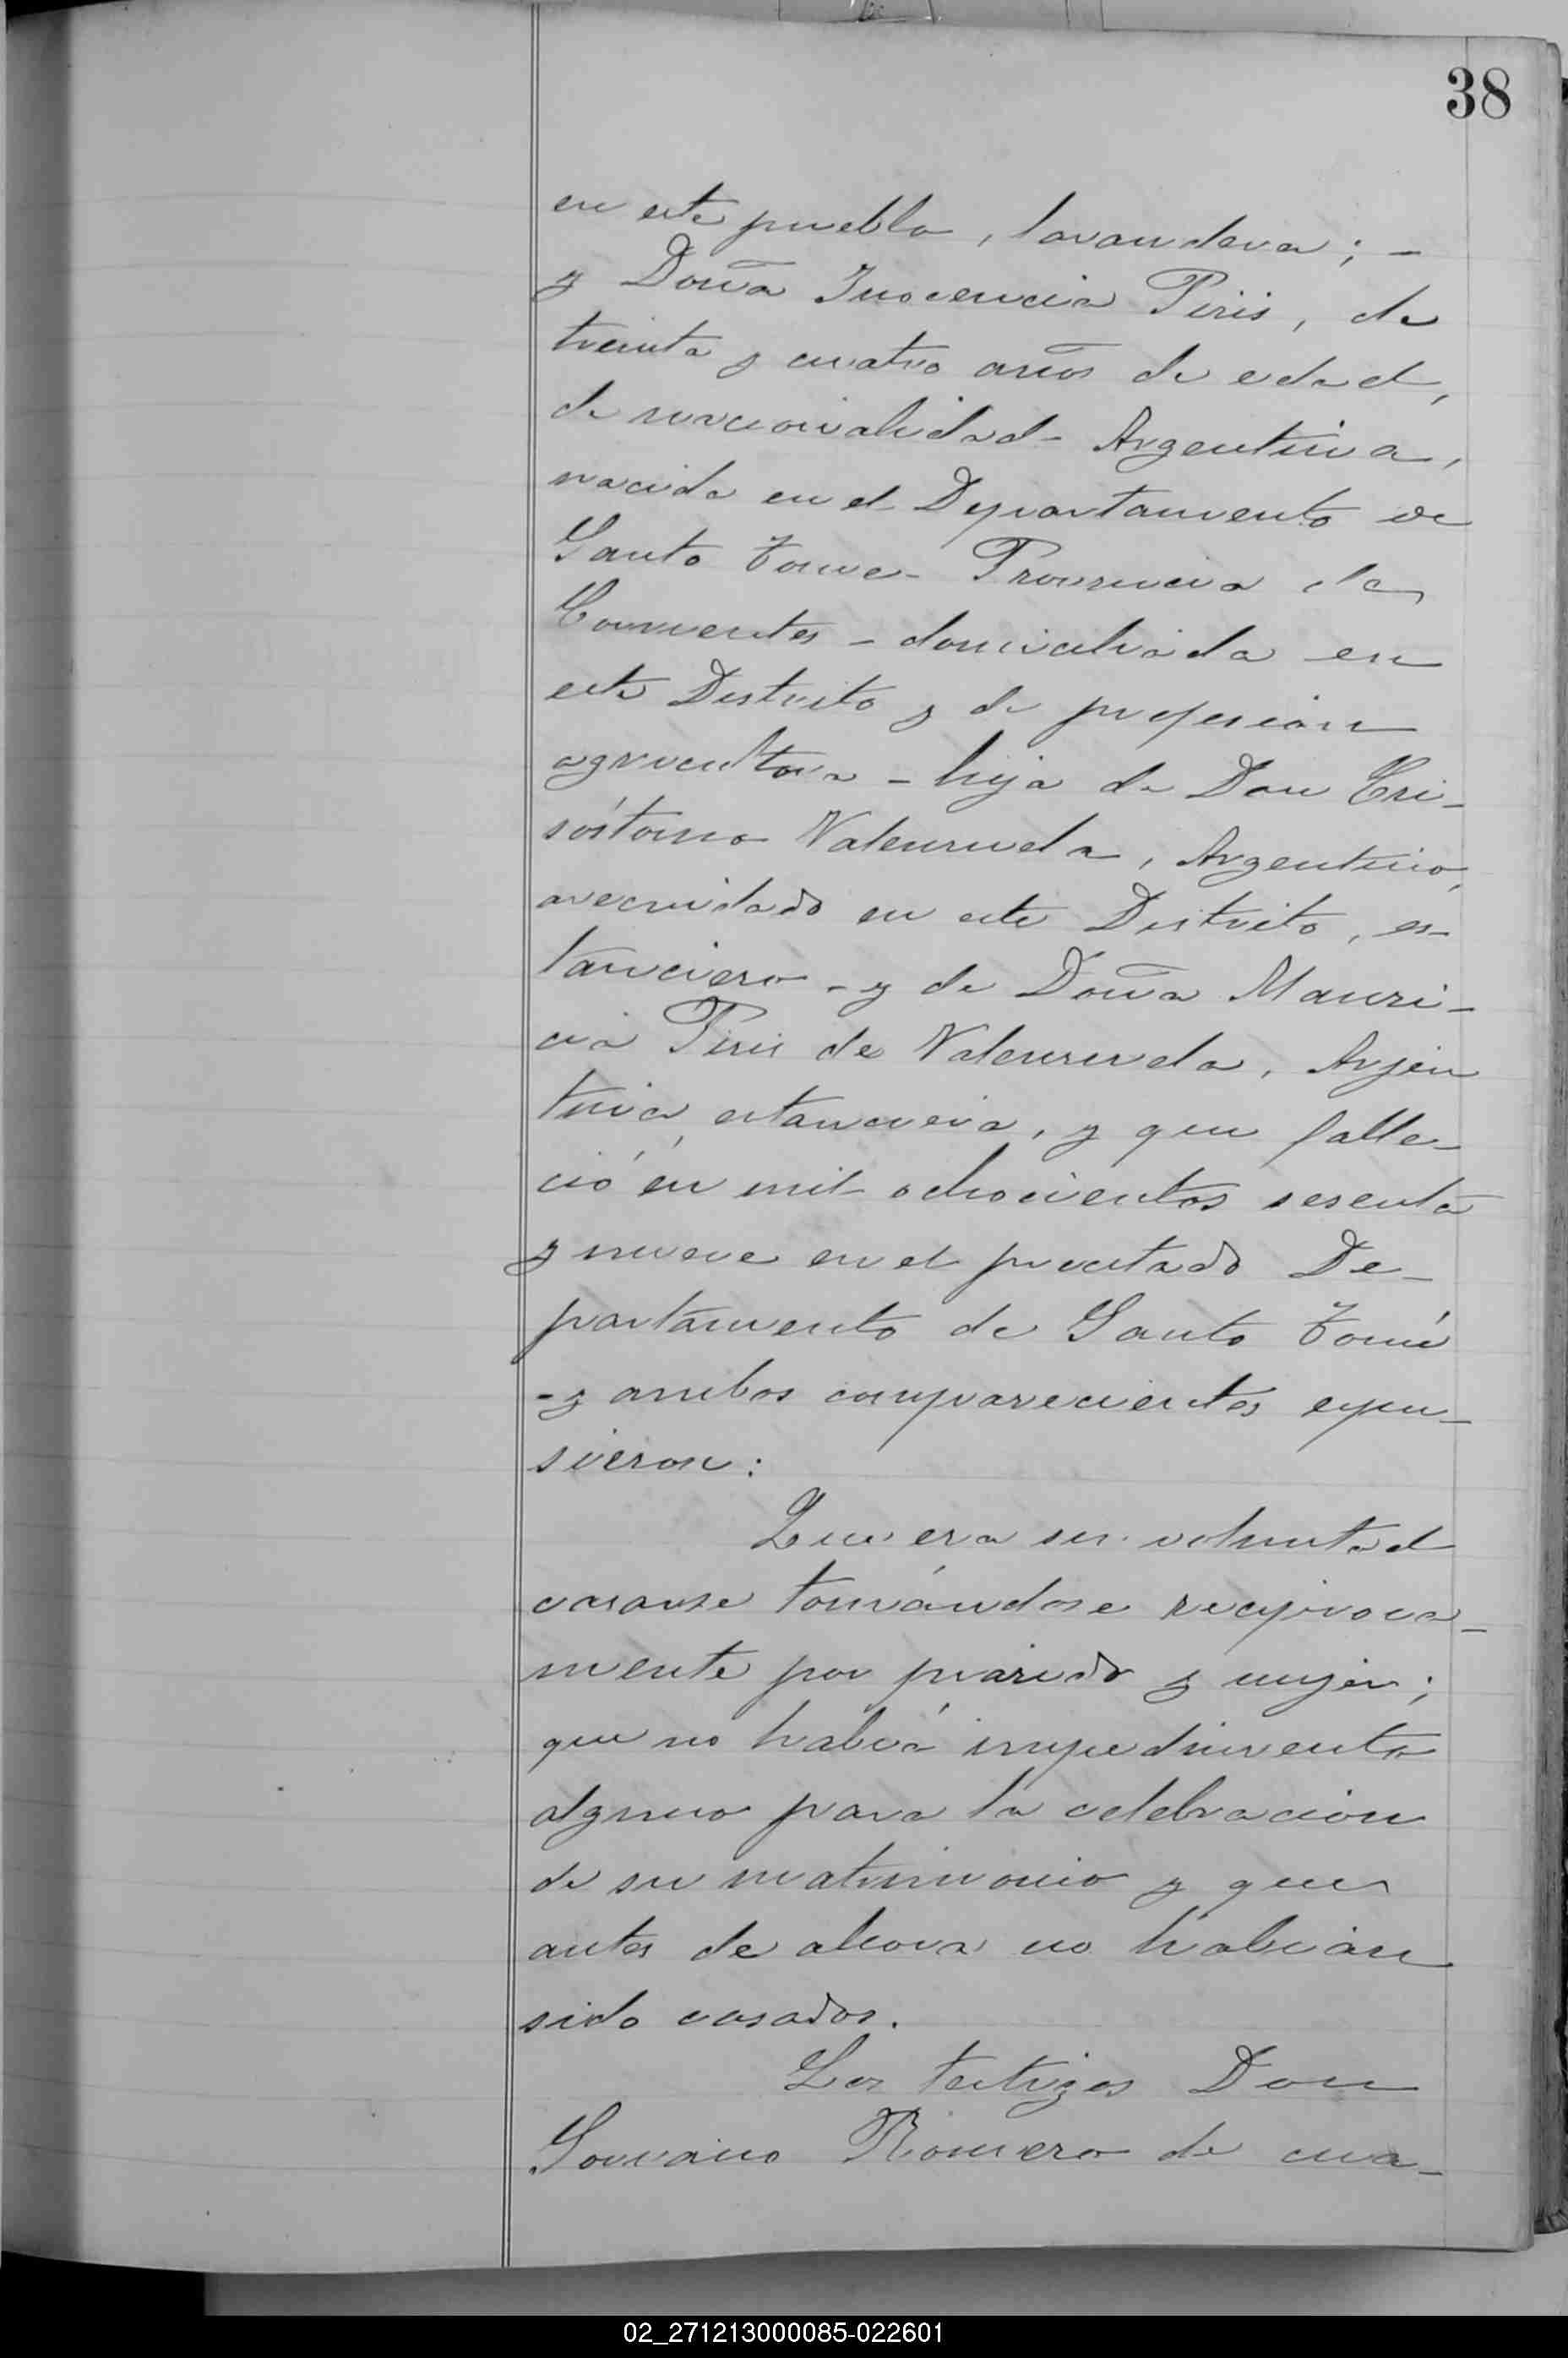 38
en este pueblo, lavandera; -
y Doña Inocencia Piris, de
treinta y cuatro años de edad,
de nacionalidad - Argentina,
nacida en el Departamento de
Santo Tome - Provincia de
Corrientes - domiciliada en
este Distrito y de profesion
agricultora - hija de Don Cri-
sóstomo Valenzuela, Argentino,
avecindado en este Distrito, es-
tanciero - y de Doña Mauri-
cia Piris de Valenzuela, Arjen
tina, estanciera, y que falle-
ció en mil ochocientos sesenta
y nueve en el precitado De-
partamento de Santo Tomé
- y ambos comparecientes espu-
sieron:
Que era su voluntad
casarse tomándose reciproca-
mente por marido y mujer;
que no habia impedimento
alguno para la celebracion
de su matrimonio y que
antes de ahora no habian
sido casados.
Los testigos Don
Romero de cua-
02_271213000085-022601